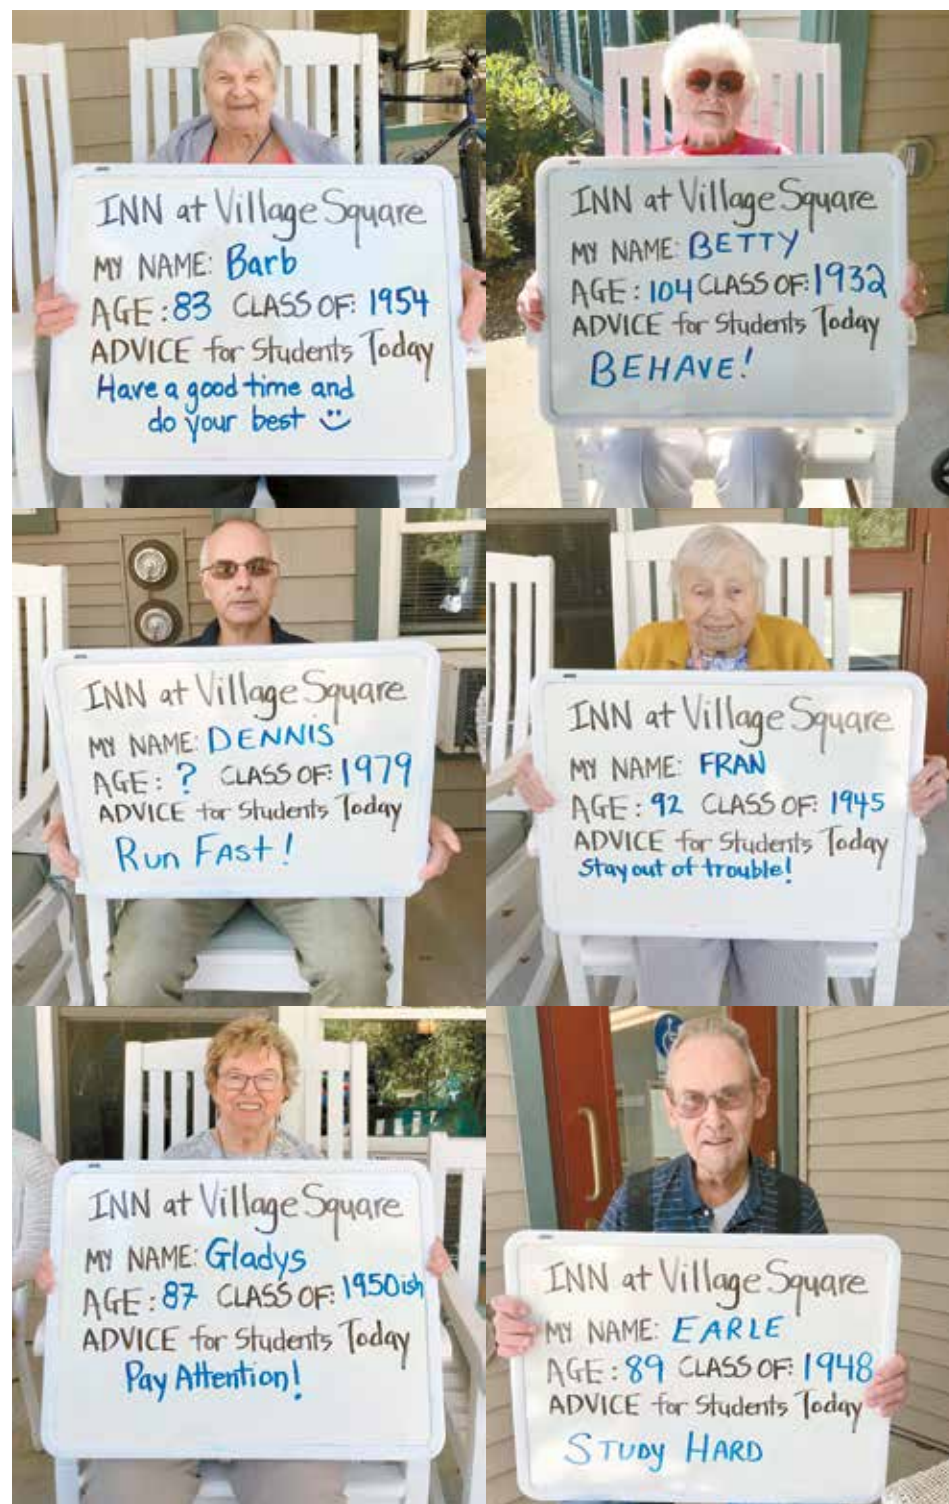 INN at Village Square
MY NAME: Barb
AGE: 83 CLASS OF: 1954
ADVICE for Students Today
Have a good time and
do your best
INN at Village Square
MY NAME: BETTY
AGE: 104 CLASS OF: 1932
ADVICE for Students Today
BEHAVE!
INN at Village Square
MY NAME: DENNIS
AGE: ? CLASS OF: 1979
ADVICE for Students Today
Run FAST!
INN at Village Square
MY NAME: FRAN
AGE: 92 CLASS OF: 1945
ADVICE for Students Today
Stay out of trouble!
INN at Village Square
MY NAME: Gladys
AGE: 87 CLASS OF: 1950ish
ADVICE for Students Today
Pay Attention!
INN at Village Square
MY NAME: EARLE
AGE: 89 CLASS OF: 1948
ADVICE for Students Today
STUDY HARD